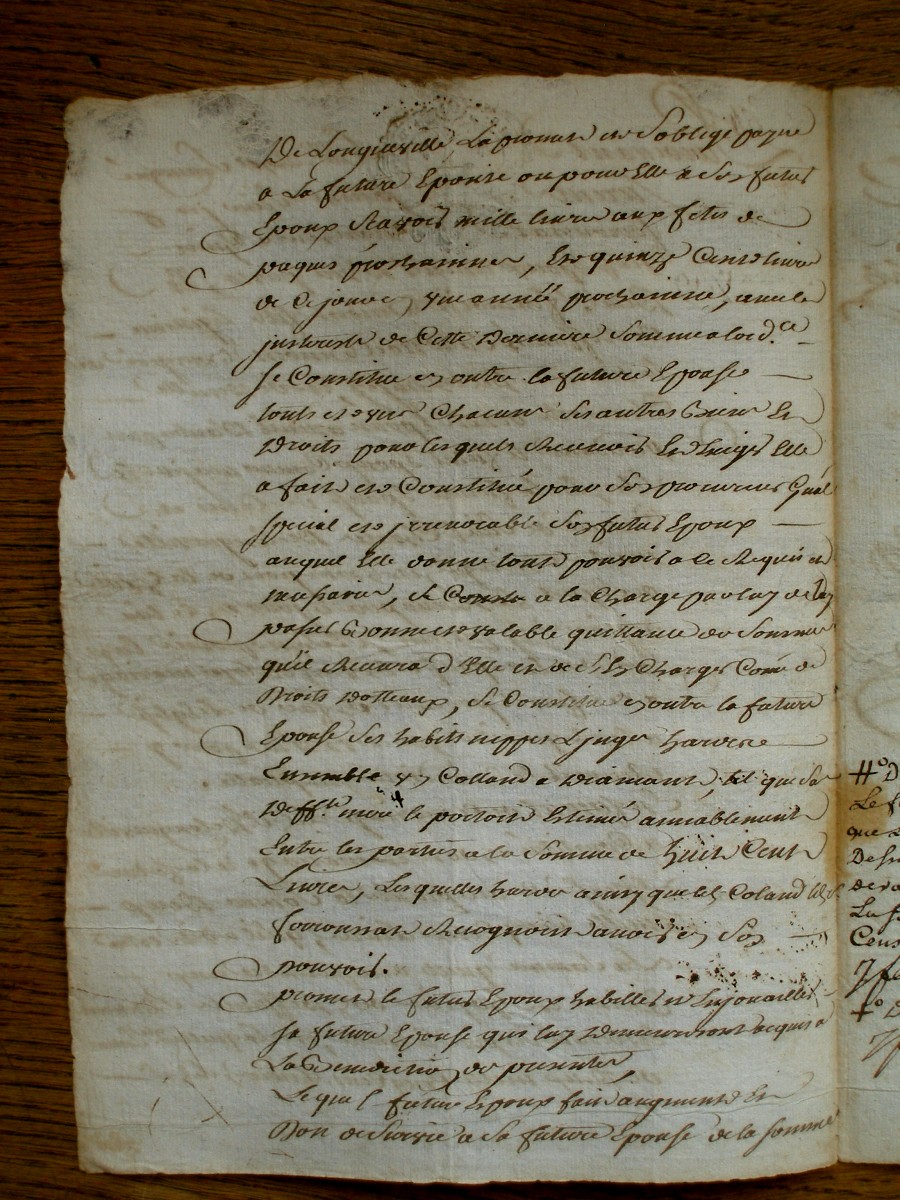 De Longueville, La promis et s'oblige payer
a La future Epouse ou pour Elle a Son futur
Epoux Scavoir mille livres aux fetes de
paques prochaines, Et quinze Cent livres
de Ce jour en une année prochaine, avec le
de Cette Derniere Somme
Se Constitue en outre la future Epouse
touts et uns Chacuns Ses autres Biens Et
Droits pour lesquels Recevoir Et Exiger Elle
a fait et Constitué pour Son procureur Gnâl
special et jrrevocable Son futur Epoux
auquel Elle donne tout pouvoir a Ce Requis et
necessaire, a la Charge par luy de
passer Bonne et valable quittance des Sommes
qu'il Recevra d'Elle et de Les Charger Come de
Droits Dottaux, Se Constitue en outre la future
Epouse Ses habits nippes Linges hardes
Ensemble un Colland a Diamant, tel que Sa
Deff.te mere le portoit Estimés amiablement
Entre les parties a la Somme de huit Cent
Livres, Lesquelles hardes ainsy que le Coland
Reconnoit avoir en Son
pouvoir.
promet le futur Epoux habiller et Enjoailler
Sa future Epouse qui luy Demeureront acquis a
La Benediction de presentes,
Lequel futur Epoux fait augment Et
Don de Survie a Sa future Epouse de la Somme
#o D
Le f
que
De
de
La f
Cens
+o D